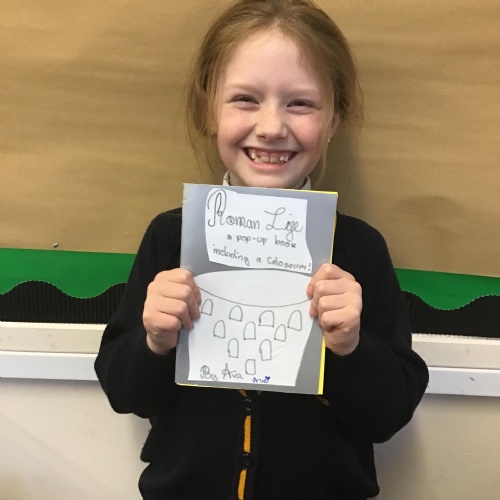 Roman Life
a pop-up book
including a Coloseum!
By Ava